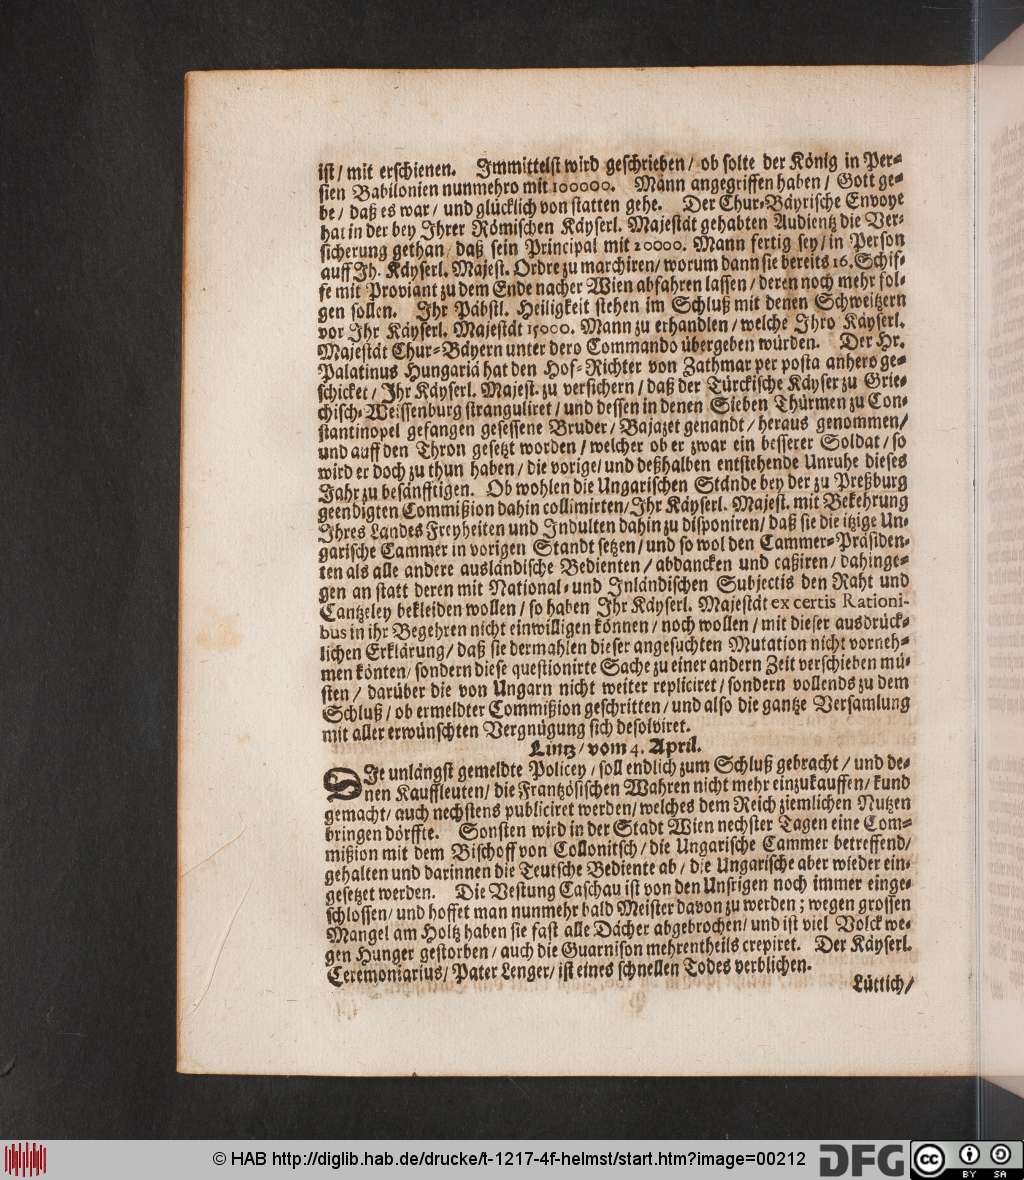 ist / mit erschienen. Immittelst wird geschrieben / ob solte der König in Per-
sien Babilonien nunmehro mit 100000. Mann angegriffen haben / Gott ge-
be / daß es war / und glücklich von statten gehe. Der Chur-Bäyrische Envoye
hat in der bey Ihrer Römischen Käyserl. Majestät gehabten Audientz die Ver-
sicherung gethan / daß sein Principal mit 20000. Mann fertig sey / in Person
auff Ih. Käyserl. Majest. Ordre zu marchiren / worum dann sie bereits 16. Schif-
fe mit Proviant zu dem Ende nacher Wien abfahren lassen / deren noch mehr fol-
gen sollen. Ihr Päbstl. Heiligkeit stehen im Schluß mit denen Schweitzern
vor Ihr Käyserl. Majestät 15000. Mann zu erhandlen / welche Ihro Käyserl.
Majestät Chur-Bäyern unter dero Commando übergeben würden. Der Hr.
Palatinus Hungariä hat den Hof-Richter von Zathmar per posta anhero ge-
schicket / Ihr Käyserl. Majest. zu versichern / daß der Türckische Käyser zu Grie-
chisch-Weissenburg stranguliret / und dessen in denen Sieben Thürmen zu Con-
stantinopel gefangen gesessene Bruder / Bajazet genandt / heraus genommen /
und auff den Thron gesetzt worden / welcher ob er zwar ein besserer Soldat / so
wird er doch zu thun haben / die vorige / und deßhalben entstehende Unruhe dieses
Jahr zu besänfftigen. Ob wohlen die Ungarischen Stände bey der zu Preßburg
geendigten Commißion dahin collimirten / Ihr Käyserl. Majest. mit Bekehrung
Ihres Landes Freyheiten und Indulten dahin zu disponiren / daß sie die itzige Un-
garische Cammer in vorigen Standt setzen / und so wol den Cammer-Präsiden-
ten als alle andere ausländische Bedienten / abdancken und caßiren / dahinge-
gen an statt deren mit National- und Inländischen Subjectis den Raht und
Cantzeley bekleiden wollen / so haben Ihr Käyserl. Majestät ex certis Rationi-
bus in ihr Begehren nicht einwilligen können / noch wollen / mit dieser ausdrück-
lichen Erklärung / daß sie dermahlen dieser angesuchten Mutation nicht vorneh-
men könten / sondern diese questionirte Sache zu einer andern Zeit verschieben mü-
sten / darüber die von Ungarn nicht weiter repliciret / sondern vollends zu dem
Schluß / ob ermeldter Commißion geschritten / und also die gantze Versamlung
mit aller erwünschten Vergnügung sich desolviret.
Lintz / vom 4. April.
DIe unlängst gemeldte Policey / soll endlich zum Schluß gebracht / und de-
nen Kauffleuten / die Frantzösischen Wahren nicht mehr einzukauffen / kund
gemacht / auch nechstens publiciret werden / welches dem Reich ziemlichen Nutzen
bringen dörffte. Sonsten wird in der Stadt Wien nechster Tagen eine Com-
mißion mit dem Bischoff von Collonitsch / die Ungarische Cammer betreffend /
gehalten und darinnen die Teutsche Bediente ab / die Ungarische aber wieder ein-
gesetzet werden. Die Vestung Caschau ist von den Unsrigen noch immer einge-
schlossen / und hoffet man nunmehr bald Meister davon zu werden ; wegen grossen
Mangel am Holtz haben sie fast alle Dächer abgebrochen / und ist viel Volck we-
gen Hunger gestorben / auch die Guarnison mehrentheils crepiret. Der Käyserl.
Ceremoniarius / Pater Lenger / ist eines schnellen Todes verblichen.
Lüttich /
© HAB http://diglib.hab.de/drucke/t-1217-4f-helmst/start.htm?image=00212
DFG
cc BY SA